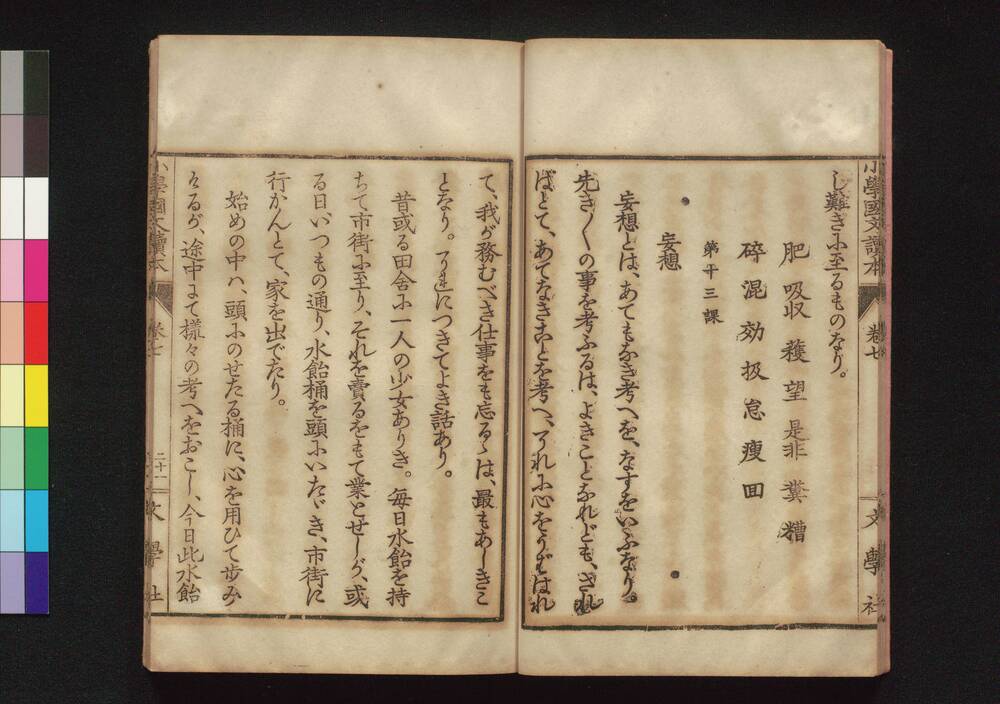 小學國文讀本
卷七
文學社
し難きに至るものなり。
肥 吸收 穫 望 是非 糞 糟
碎 混 効 扱 怠 痩 回
第十三課
妄想
妄想とは、あてもなき考へを、なすをいふなり。
先き〱の事を考ふるは、よきことなれども、され
ばとて、あてなきことを考へ、それに心をうばはれ
て、我が務むべき仕事をも忘るゝは、最もあしきこ
となり。これにつきてよき話あり。
昔或る田舍に一人の少女ありき。毎日水飴を持
ちて市街に至り、それを賣るをもて業とせしが、或
る日いつもの通り、水飴桶を頭にいたゞき、市街に
行かんとて、家を出でたり。
始めの中ハ、頭にのせたる桶に、心を用ひて歩み
けるが、途中にて樣々の考へをおこし、今日此水飴
小學國文讀本
卷七
二十一
文學社